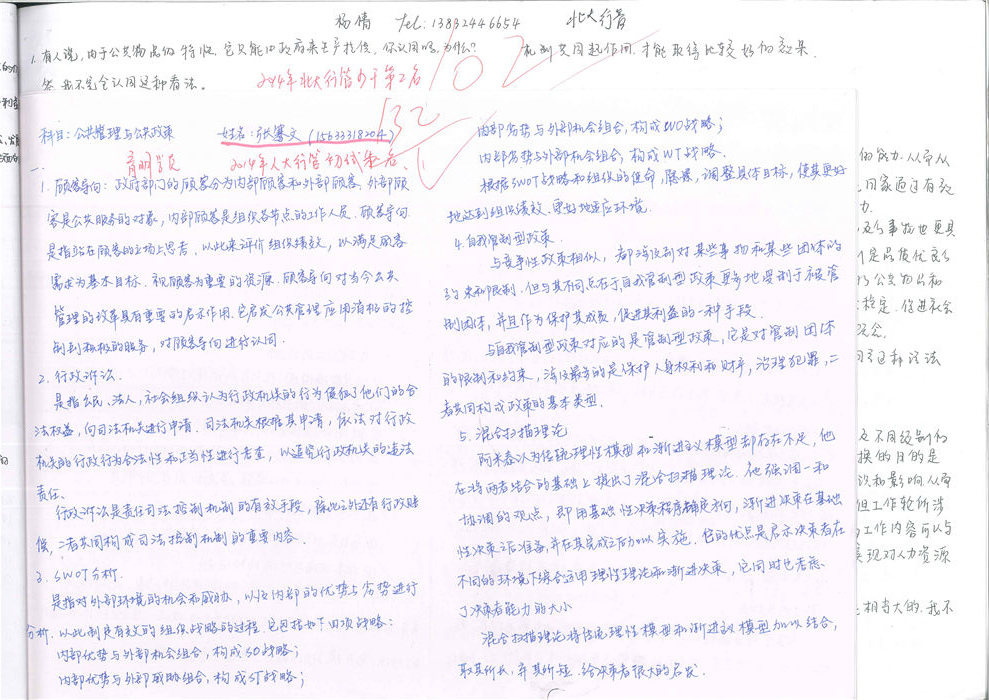 杨倩 Tel: 13832446654 北大行管
1. 有人说,由于公共物品的特性,它只能由政府来生产提供,你认同吗,为什么?
答: 我不完全认同这种看法。
机制共同起作用,才能取得比较好的效果.
2014年北大行管初于第2名
102
132
科目: 公共管理与公共政策 姓名: 张馨文 (15633318204)
育明学员 2014年人大行管初试第一名
一、
1. 顾客导向: 政府部门的顾客分为内部顾客和外部顾客. 外部顾
客是公共服务的对象, 内部顾客是组织各节点的工作人员. 顾客导向
是指站在顾客的立场上思考, 以此来评价组织绩效, 以满足顾客
需求为基本目标. 视顾客为重要的资源. 顾客导向对当今公共
管理的改革具有重要的启示作用. 它启发公共管理应用消极的控
制到积极的服务, 对顾客导向进行认同.
2. 行政诉讼.
是指公民、法人, 社会组织认为行政机关的行为侵犯了他们的合
法权益, 向司法机关进行申请. 司法机关根据其申请, 依法对行政
机关的行政行为合法性和正当性进行审查, 以追究行政机关的违法
责任.
行政诉讼是责任司法控制机制的有效手段, 除此之外还有行政赔
偿, 二者共同构成司法控制机制的重要内容.
3. SWOT分析.
是指对外部环境的机会和威胁, 以及内部的优势与劣势进行
分析. 以此制定有效的组织战略的过程. 它包括如下四项战略:
内部优势与外部机会组合, 构成SO战略;
内部优势与外部威胁组合, 构成ST战略;
内部劣势与外部机会组合, 构成WO战略;
内部劣势与外部机会组合, 构成WT战略.
根据SWOT战略和组织的使命, 愿景, 调整具体目标, 使其更好
地达到组织绩效. 更好地适应环境.
4. 自我管制型政策.
与竞争性政策相似, 都涉及到对某些事物和某些团体的
约束和限制. 但与其不同点在于, 自我管制型政策更多地受制于被管
制团体, 并且作为保护其成员, 促进其利益的一种手段.
与自我管制型政策对应的是管制型政策, 它是对管制团体
的限制和约束, 涉及最多的是保护人身权利和财产, 治理犯罪, 二
者共同构成政策的基本类型.
5. 混合扫描理论
阿米泰认为传统理性模型和渐进主义模型都存在不足, 他
在将两者结合的基础上提出了混合扫描理论. 他强调一和
协调的观点, 即用基础性决策程序确定方向, 渐进决策在基础
性决策之后准备, 并在其实成之后加以实施. 它的优点是启示决策者在
不同的环境下综合运用理性理论和渐进决策, 它同时也考虑
了决策者能力的大小
混合扫描理论将传统理性模型和渐进主义模型加以结合,
取其所长, 弃其所短. 给决策者很大的启发.
的能力. 从而从
国家通过有效
力.
及公事物也更具
促进社会
观念.
及不同级别的
换的目的是
和影响 从而
但工作轮所涉
工作内容可以与
实现对人力资源
相当大的. 我不